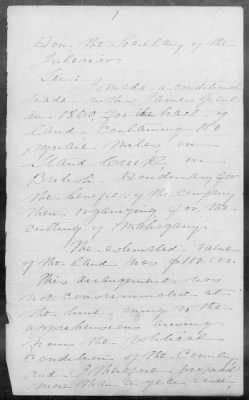 1
Hon. the Secretary of the
Interior:
Sir:
I made a conditional
trade with James Grant
in 1860, for the tract of
land, containing 110
square miles, on
Island Creek, in
British Honduras, for
the benefit of the company
then organizing for the
cutting of Mahogany.
The estimated value
of the land was $100.000.
This arrangement was
not consummated at
the time, owing to the
apprehensions arising
from the political
condition of the Country
and I therefore
more than a year